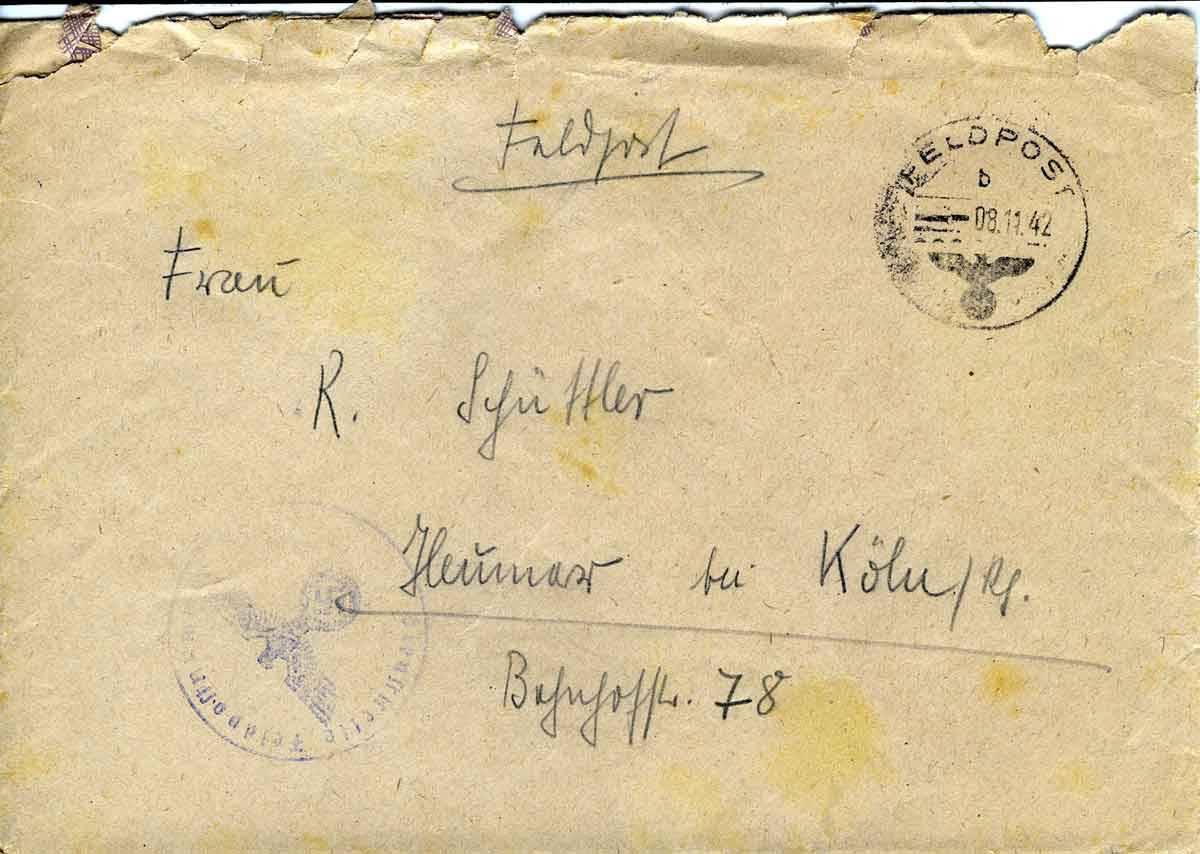 Feldpost
FELDPOST
b
08.11.42
Frau
R. Schüttler
Heumar bei Köln/Rh.
Bahnhofstr. 78